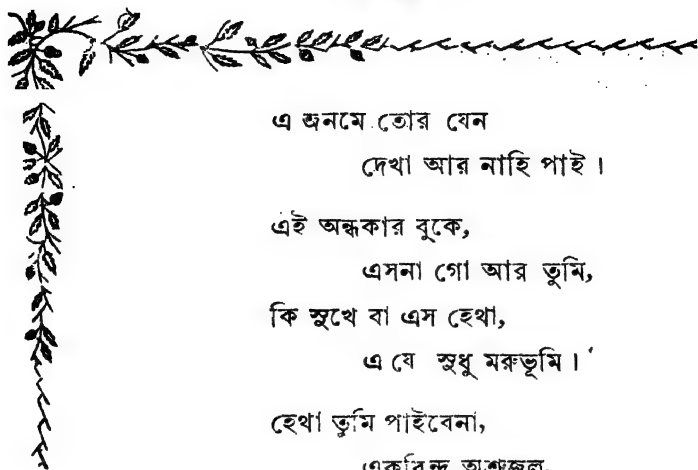 এ জনমে তোর যেন
দেখা আর নাহি পাই।
এই অন্ধকার বুকে,
এসনা গো আর তুমি,
কি সুখে বা এস হেথা,
এ যে সুধু মরুভূমি।
হেথা তুমি পাইবেনা,
একবিন্দু অশ্রুজল,